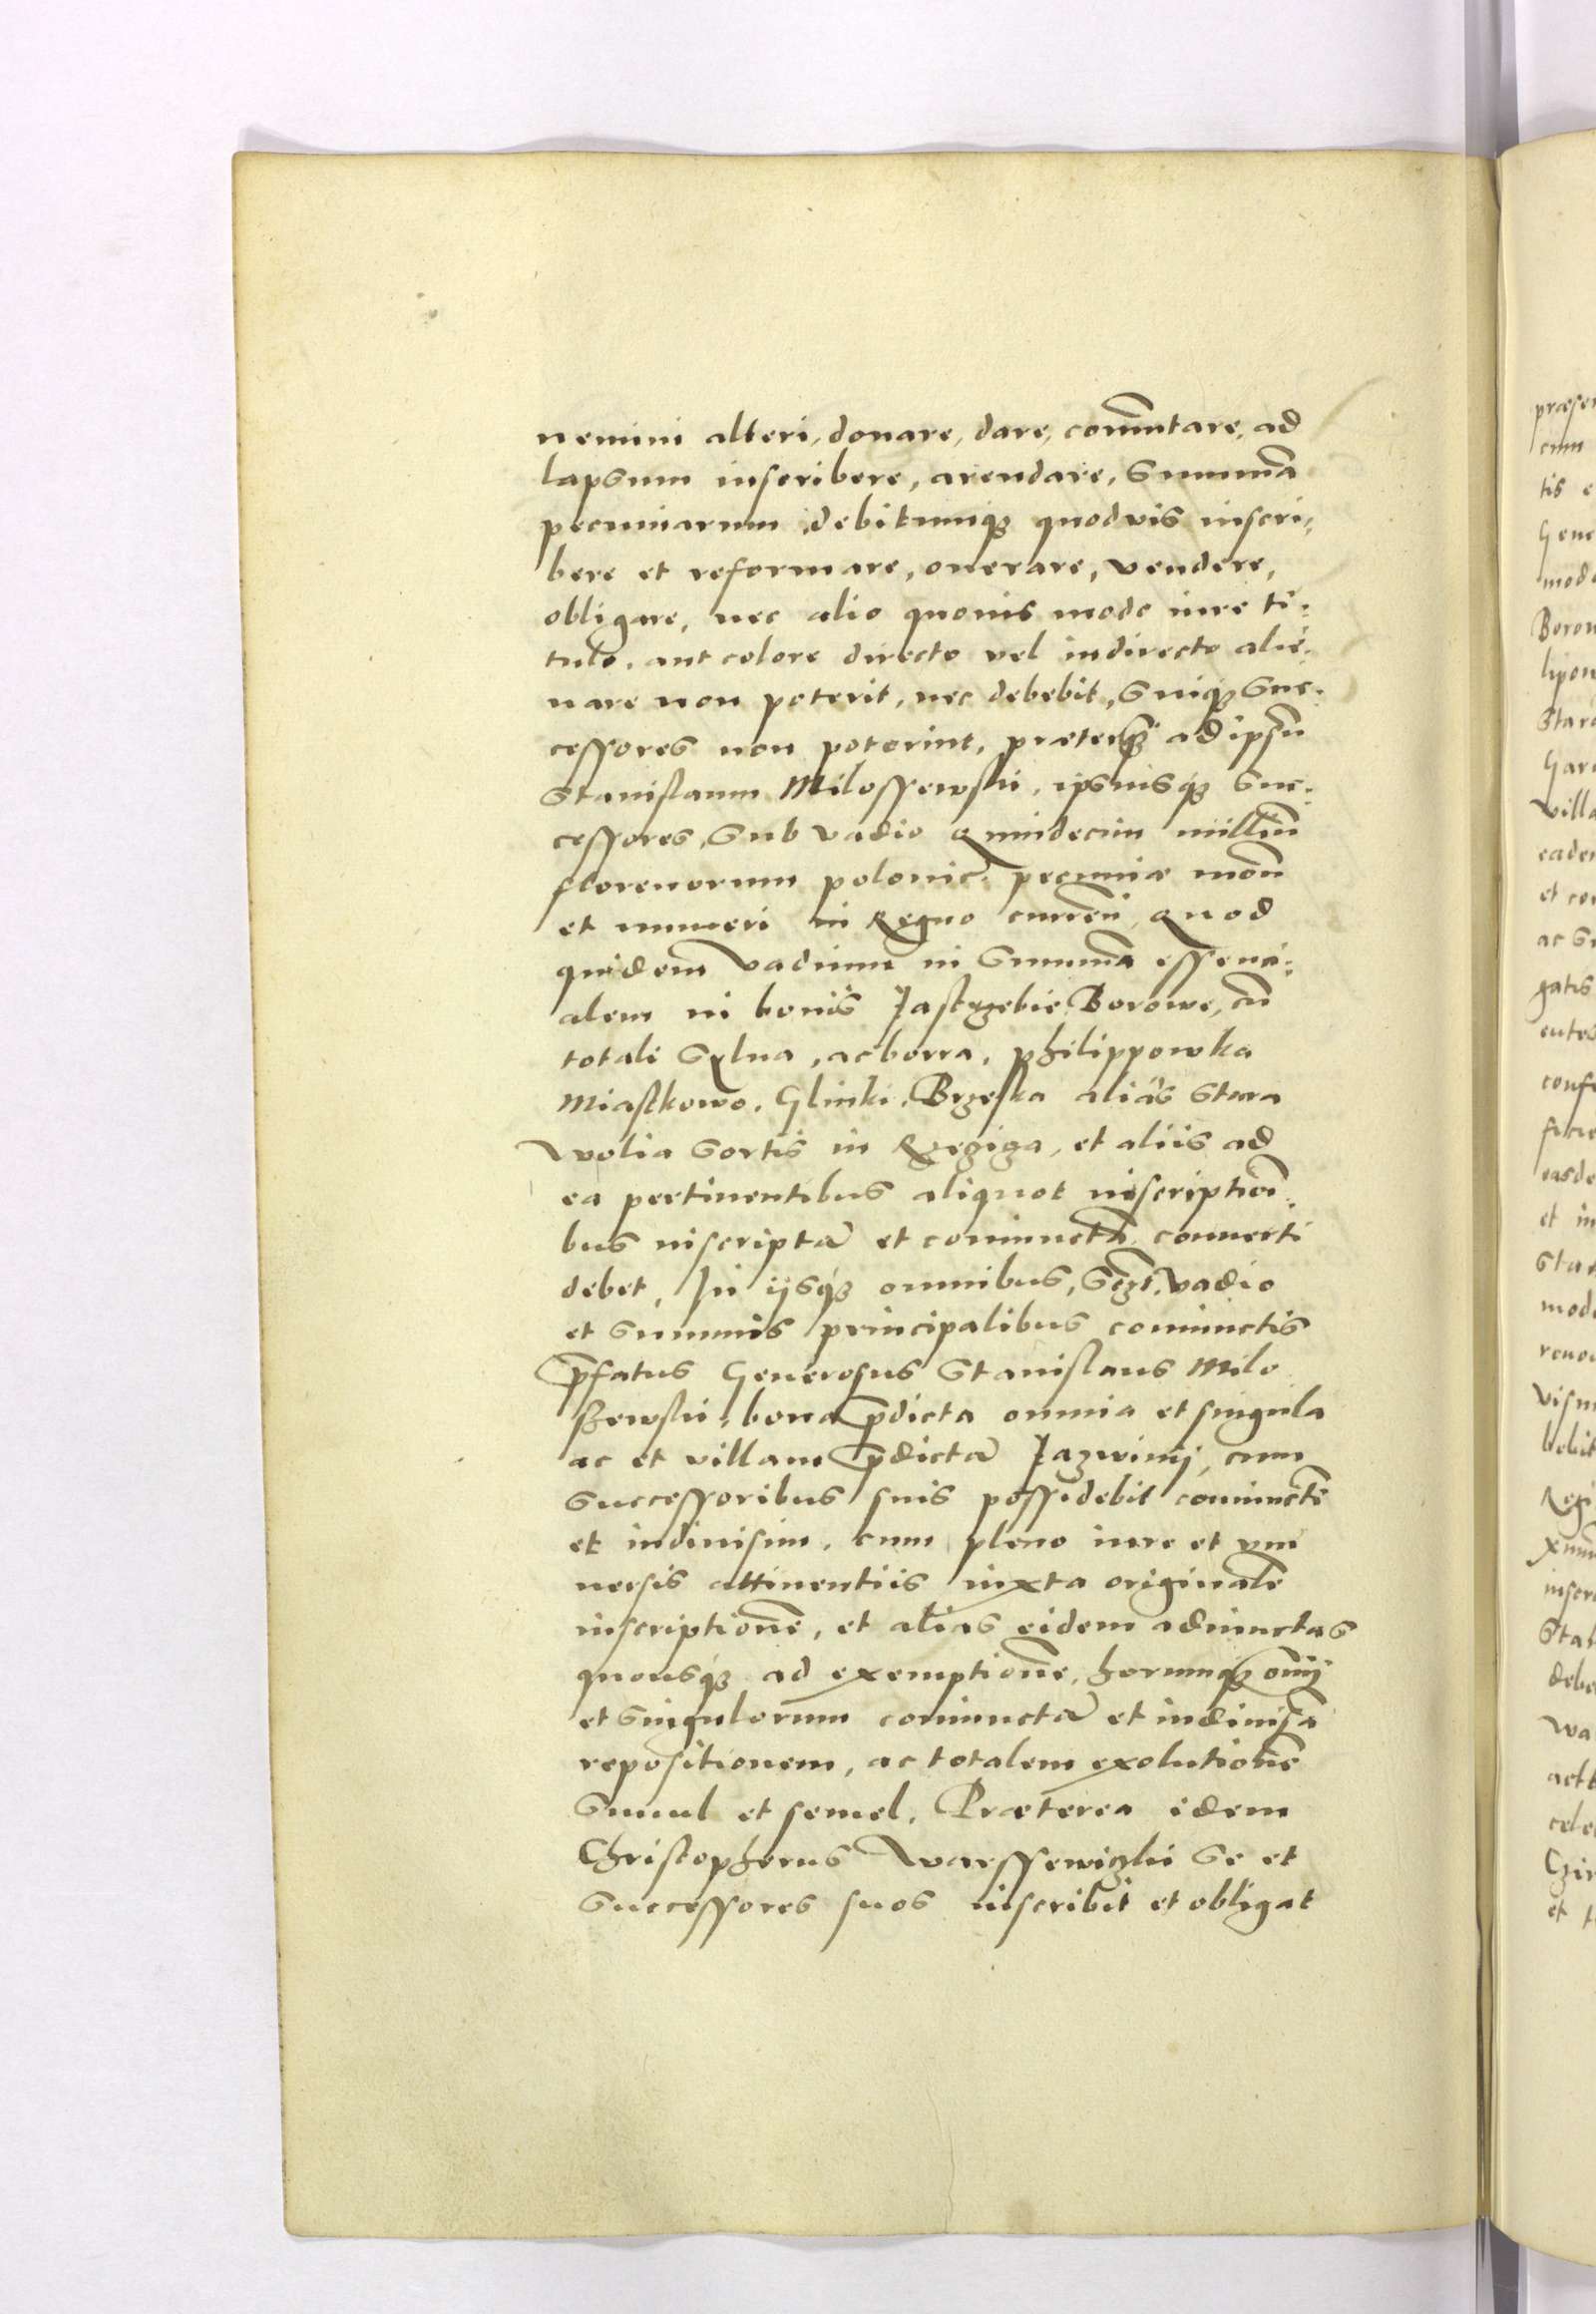 nemini alteri, donare, dare, com̄utare, ad
lapsum inscribere, arendare, summã
pecuniarum, debitumq3 quodvis inscri:
bere et reformare, onerare, vendere,
obligare, nec alio quovis modo iure ti:
tulo, aut colore directo vel indirecto alie:
nare non poterit, nec debebit, suiq3 suc:
cessores non poterint, præterq3 ad ipsũ
Stanislaum Milossewski, ipsiusq3 suc:
cessores, sub vadio Quindecim milliũ
florenorum polonic. pecuniæ mon̄
et numeri in Regno curren̄, Quod
quidem vadium in summã essenci:
alem in bonis Jastrzebie, Borowe, cũ
totali sylua, ac borra, Philippowka
Miastkowo, Glinki, Brzeska aliàs Stara
Wolia sortis in Rzeziga, et aliis ad
ea pertinentibus aliquot inscription̄:
bus inscriptã et coniunctã, conuerti
debet, In ijsq3 omnibus, vadio
et summis principalibus coniunctis
p̄fatus Generosus Stanislaus Milo
szewski, bona p̄dicta omnia et singula
ac et villam p̄dictã Jazwinij, cum
successoribus suis possidebit coniunctī
et indiuisim, cum pleno iure et vni
uersis attinentiis iuxta originalē
inscriptionē, et alias eidem adiunctas
quousq3 ad exemptionē, horumq3 om̄ij
et singulorum coniunctã et indiuisã
repositionem, ac totalem exolutionē
simul et semel. Præterea idem
Christopherus Warssewiczki se et
successores suos inscribit et obligat
præse
cum
tis e
Gene
mod
Borow
lipow
Star
Gar
villa
eade
et co
ac s
gatis
entes
conf
easde
et in
Sta
mod
reno
visu
bebit
Regi
inser
Sta
debe
wa
act
cele
et t